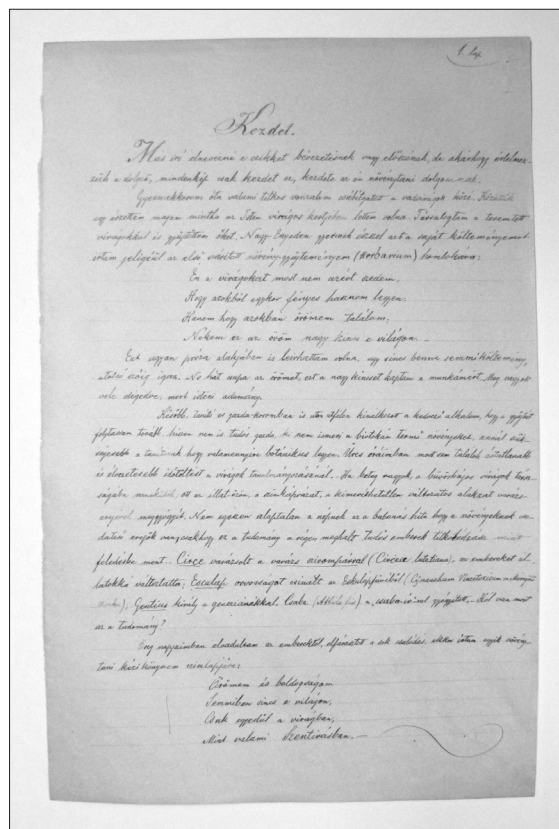 1. lap
Kezdet.
Más író elnevezné e cikket bevezetésnek vagy előszónak, de akárhogy értelmez-
zük a dolgot, mindenkép csak kezdet ez, kezdete az én növénytani dolgomnak.
Gyermekkorom óta valami titkos vonzalom csábítgatott a vadvirágok közé.
egy részében majon mintha az Isten virágos kertjében lettem volna. Társalogtam a teremtett
virágokkal és gyűjtöttem őket. Nagy Enyeden gyermek ésszel ezt a saját költeményemet
írtam jeligéül az első növénygyűjteményem (Herbarium) homlokára:
Én a virágokat most nem azért szedem,
Hogy azokból egykor fényes hasznom legyen.
Hanem hogy azokban örömem találom,
Nekem ez az öröm nagy kincs e világon. —
Ezt ugyan próza alakjában is leírhattam volna, úgy sincs benne semmi költemény,
utolsó szóig igaz. No hát aztán az örömet, ezt a nagy kincset kaptam a munkámért. Meg vagyok
vele elégedve, mert isteni adomány.
Később, ifjú és gazda koromban is kínálkozott a kedvező alkalom, hogy a gyűjtést
folytassam tovább, hiszen nem is tudós gazda, ki nem ismeri a birtokán termő növényeket, annál szük-
ségesebb a tanítónak hogy valamennyire botánikus legyen. Üres óráimban most sem találok ártatlanabb
és élvezetesebb időtöltést a virágok tanulmányozásánál. Ha beteg vagyok, a bűvösbájos virágok társa-
ságába menekülök, ott az illat özön, a színkáprázat, a kimeríthetetlen változatos alakzat varázs
erejével meggyógyít. Nem egészen alaptalan a népnek az a babonás hite hogy a növényeknek cso-
datévő erejök van, csakhogy ez a tudomány a régen meghalt tudós emberek titka mint
feledésbe ment. Circe varázsolt a varázs (Circaea lutetiana), az embereket ál-
latokká változtatta; Esculap orvosságot csinált az Eskulápfűből (Cynanchum Vincetoxicum
), Gentius király a genciánákkal, Csaba (Attila fia) a csaba-írral gyógyított. — Hol van most
ez a tudomány?
Én napjaimban elvadultam az emberektől, elfárasztott a sok csalódás, ekkor írtam egyik növény-
tani kézi könyvem címlapjára:
Örömem és boldogságom
Semmiben sincs a világon,
Csak egyedül a virágban,
Mint valami Szentírásban. —